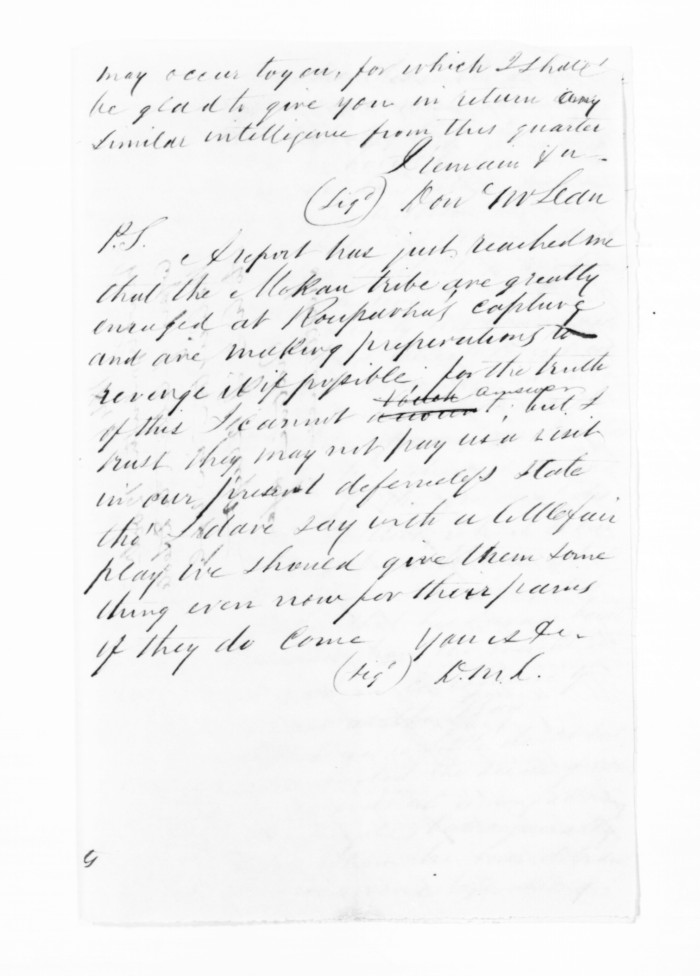 may occur to you, for which I shall
be glad to give you in return any
similar intelligence from this quarter
I remain &c
(Sigd) Don McLean
P.S.
A report has just reached me
that the Mokau tribe are greatly
enraged at Rauparha's capture
and are making preparations to
revenge it if possible, for the truth
of this I cannot answer, but I
trust they may not pay us a visit
in our present defenceless state
tho' I dare say with a little fair
play we should give them some
thing even now for their pains
if they do come Yours &c
(Sigd) D. McL.